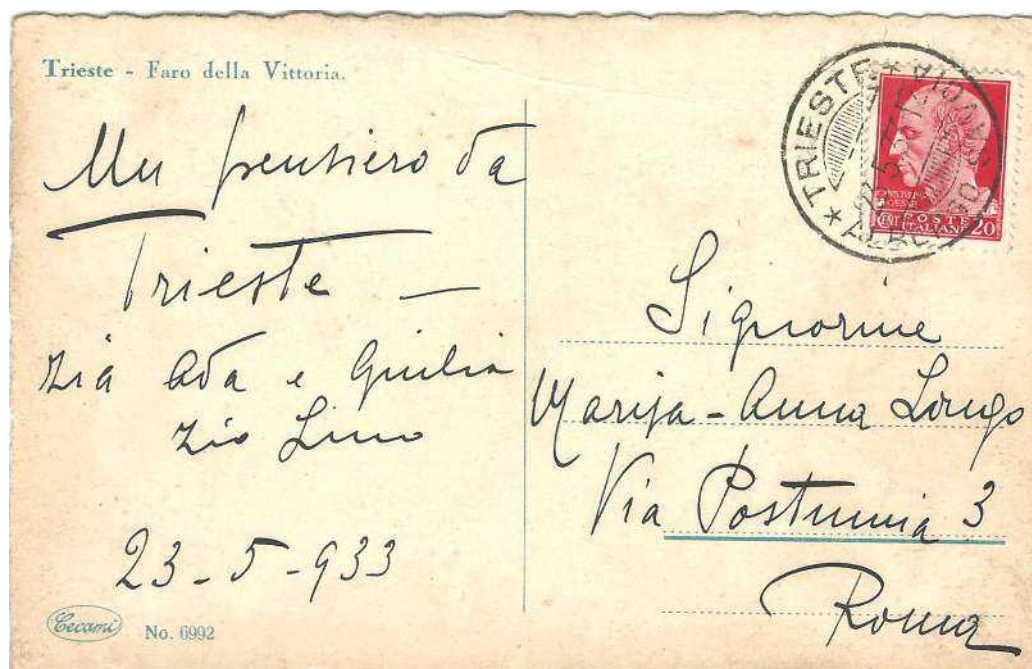 Trieste - Faro della Vittoria.
Un pensiero da
Trieste —
zia Ada e Giulia
zio Lino
23-5-933
Cecami
No. 6992
* TRIESTE *
ALBERGO SAVOIA
CENT POSTE 20
ITALIANE
Signorine
Marisa-Anna Longo
Via Postumia 3
Roma